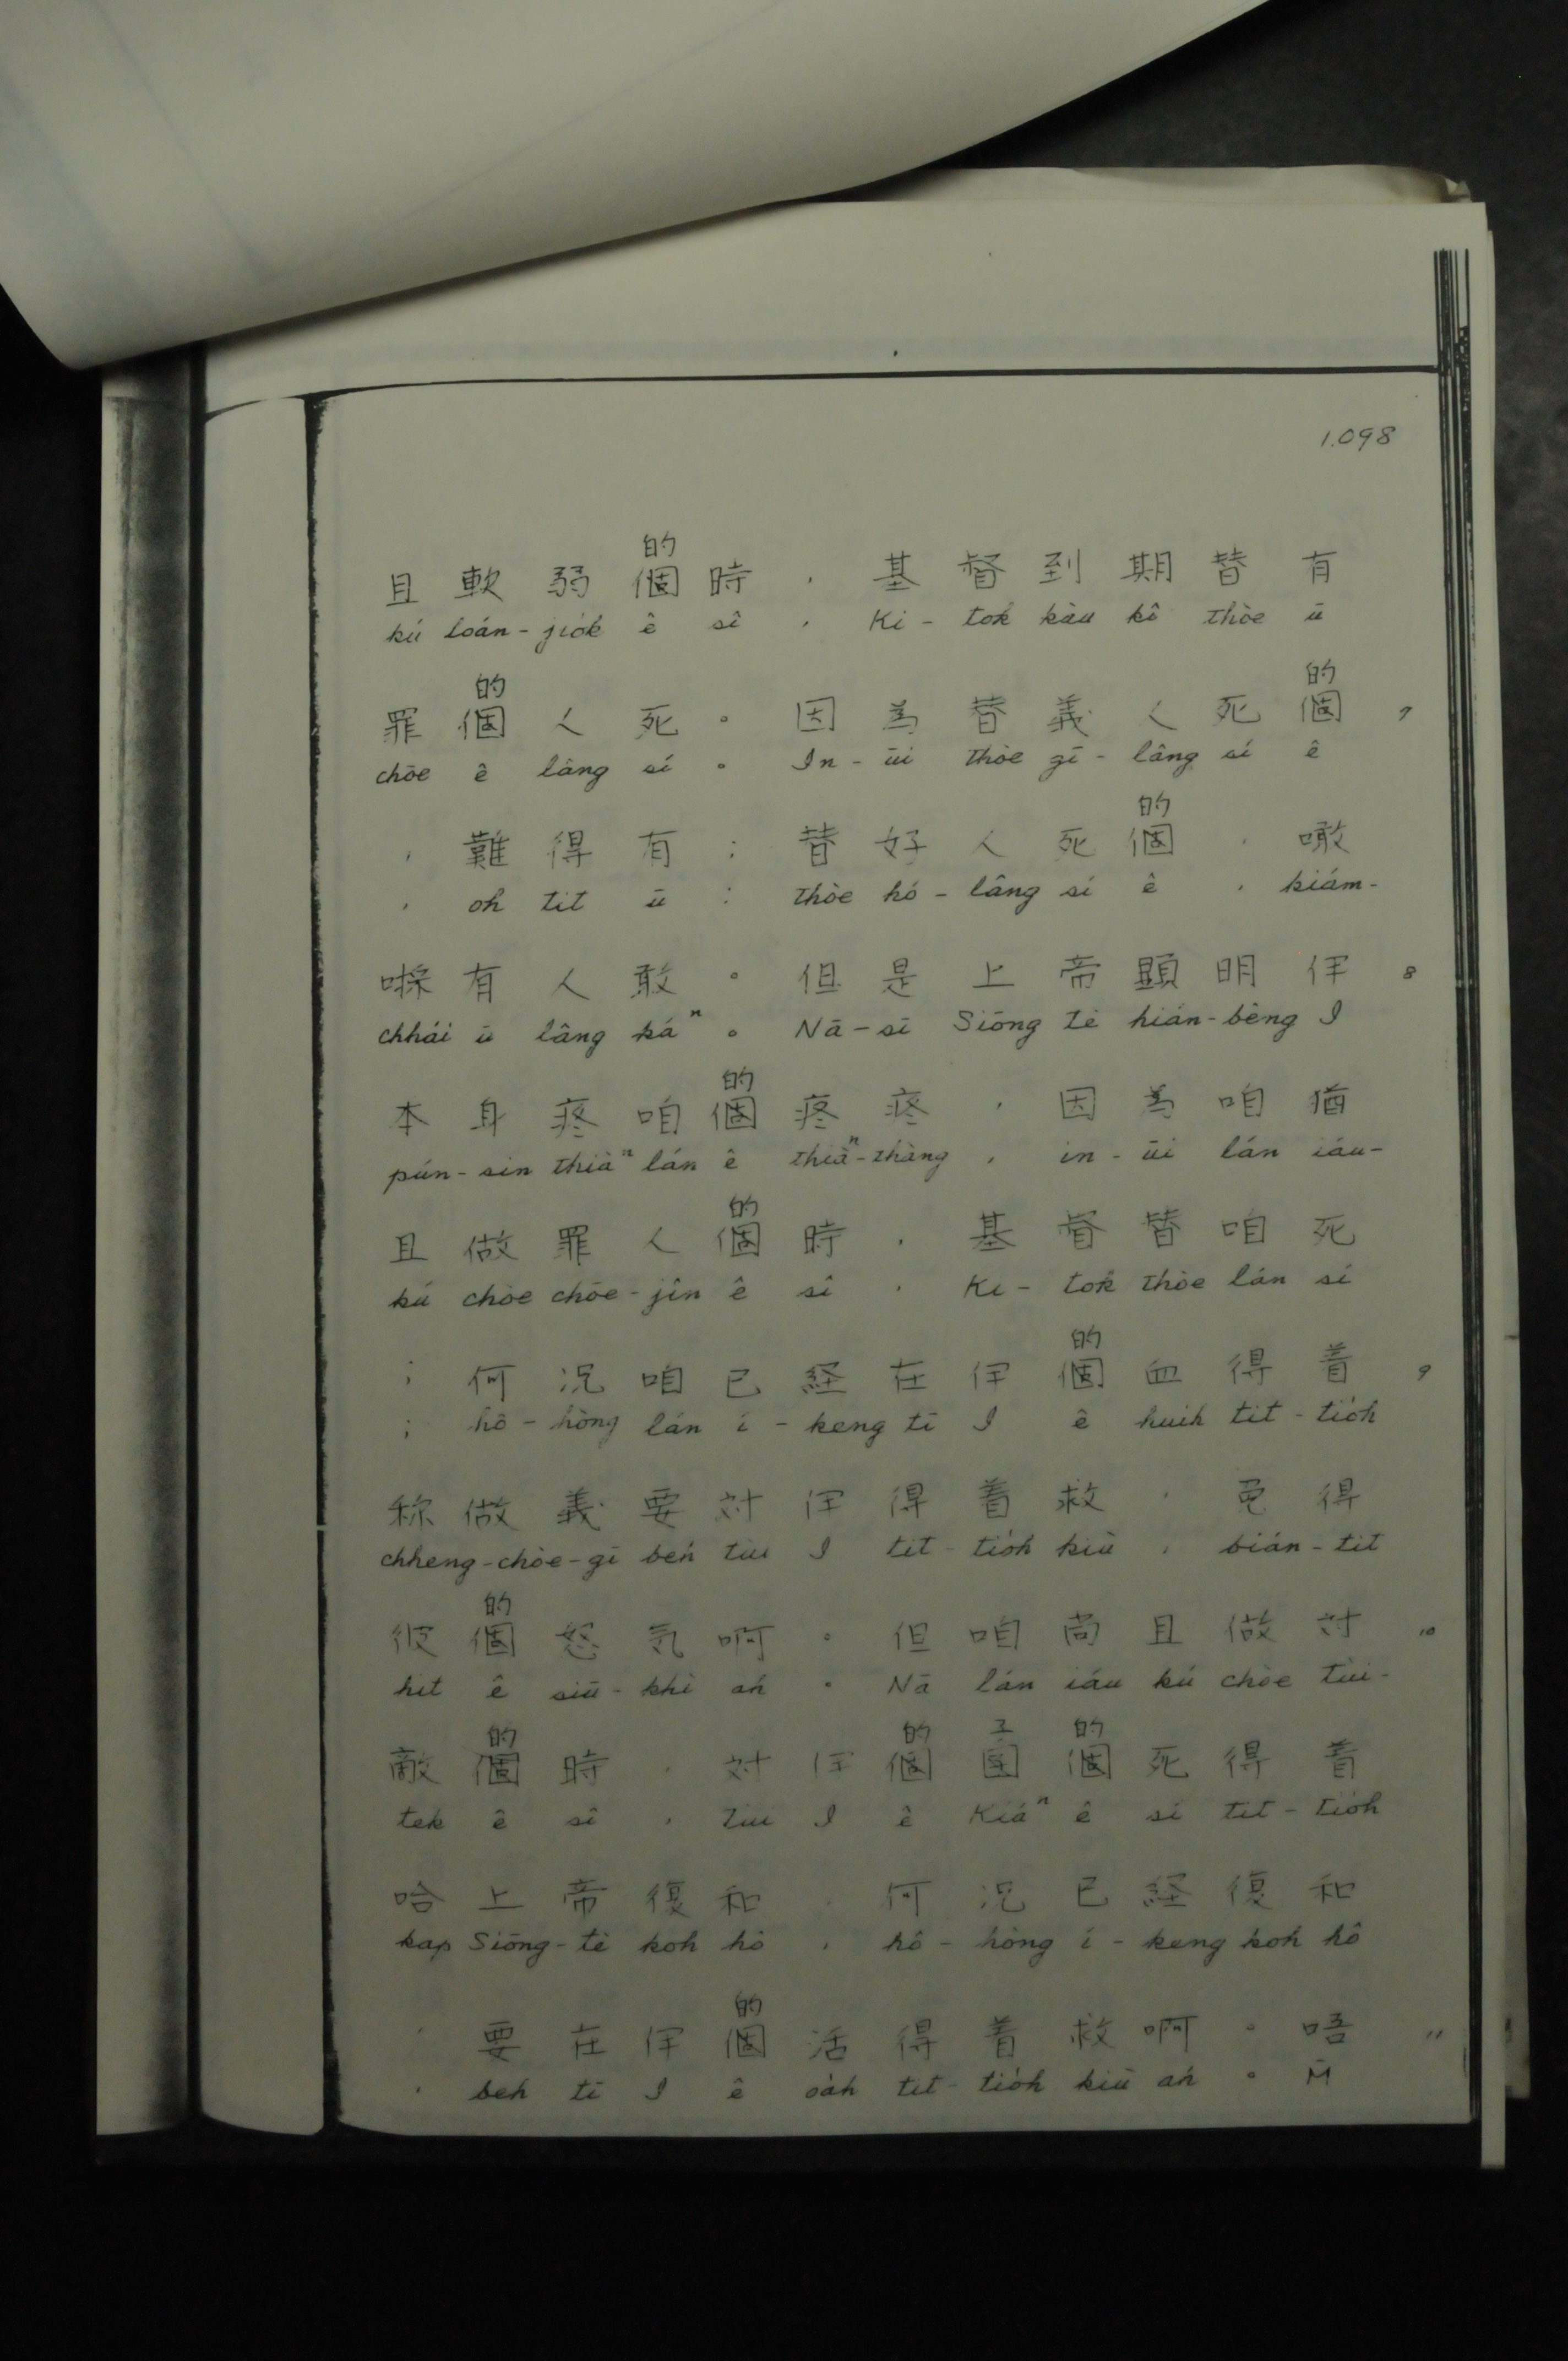 1.098
的
且軟弱個時，基督到期替有
kú loán-jio̍k ê sî , Ki-tok kàu kî thòe ū
的 的
罪個人死。因為替義人死個 7
chōe ê lâng sí 。 In-ūi thòe gī-lâng sí ê
的
，難得有：替好人死個，噉
, oh tit ū : thòe hó-lâng sí ê , kiám-
啋有人敢。但是上帝顯明伊 8
chhái ū lâng káⁿ 。 Nā-sī Siōng tè hián-bêng I
的
本身疼咱個疼疼，因為咱猶
pún-sin thiàⁿ lán ê thiàⁿ-thàng , in-ūi lán iáu-
的
且做罪人個時，基督替咱死
kú chòe chōe-jîn ê sî , Ki-tok thòe lán sí
的
；何况咱已経在伊個血得着 9
; hô-hòng lán í-keng tī I ê huih tit-tio̍h
称做義要対伊得着救，免得
chheng-chòe-gī beh tùi I tit-tio̍h kiù , bián-tit
的
彼個怒気啊。但咱尚且做対 10
hit ê siū-khì ah 。 Nā lán iáu kú chòe tùi-
的 的 子 的
敵個時，対伊個囝個死得着
tek ê sî , tùi I ê Kiáⁿ ê sí tit-tio̍h
哈上帝復和，何况已経復和
kap Siōng-tè koh hô , hô-hòng í-keng koh hô
的
，要在伊個活得着救啊。唔 11
, beh tī I ê oa̍h tit-tio̍h kiù ah 。 M̄